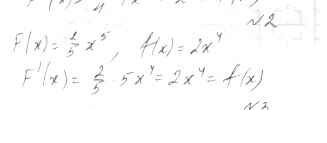 №2
F(x) = 2/5 x⁵, f(x) = 2x⁴
F'(x) = 2/5 · 5x⁴ = 2x⁴ = f(x)